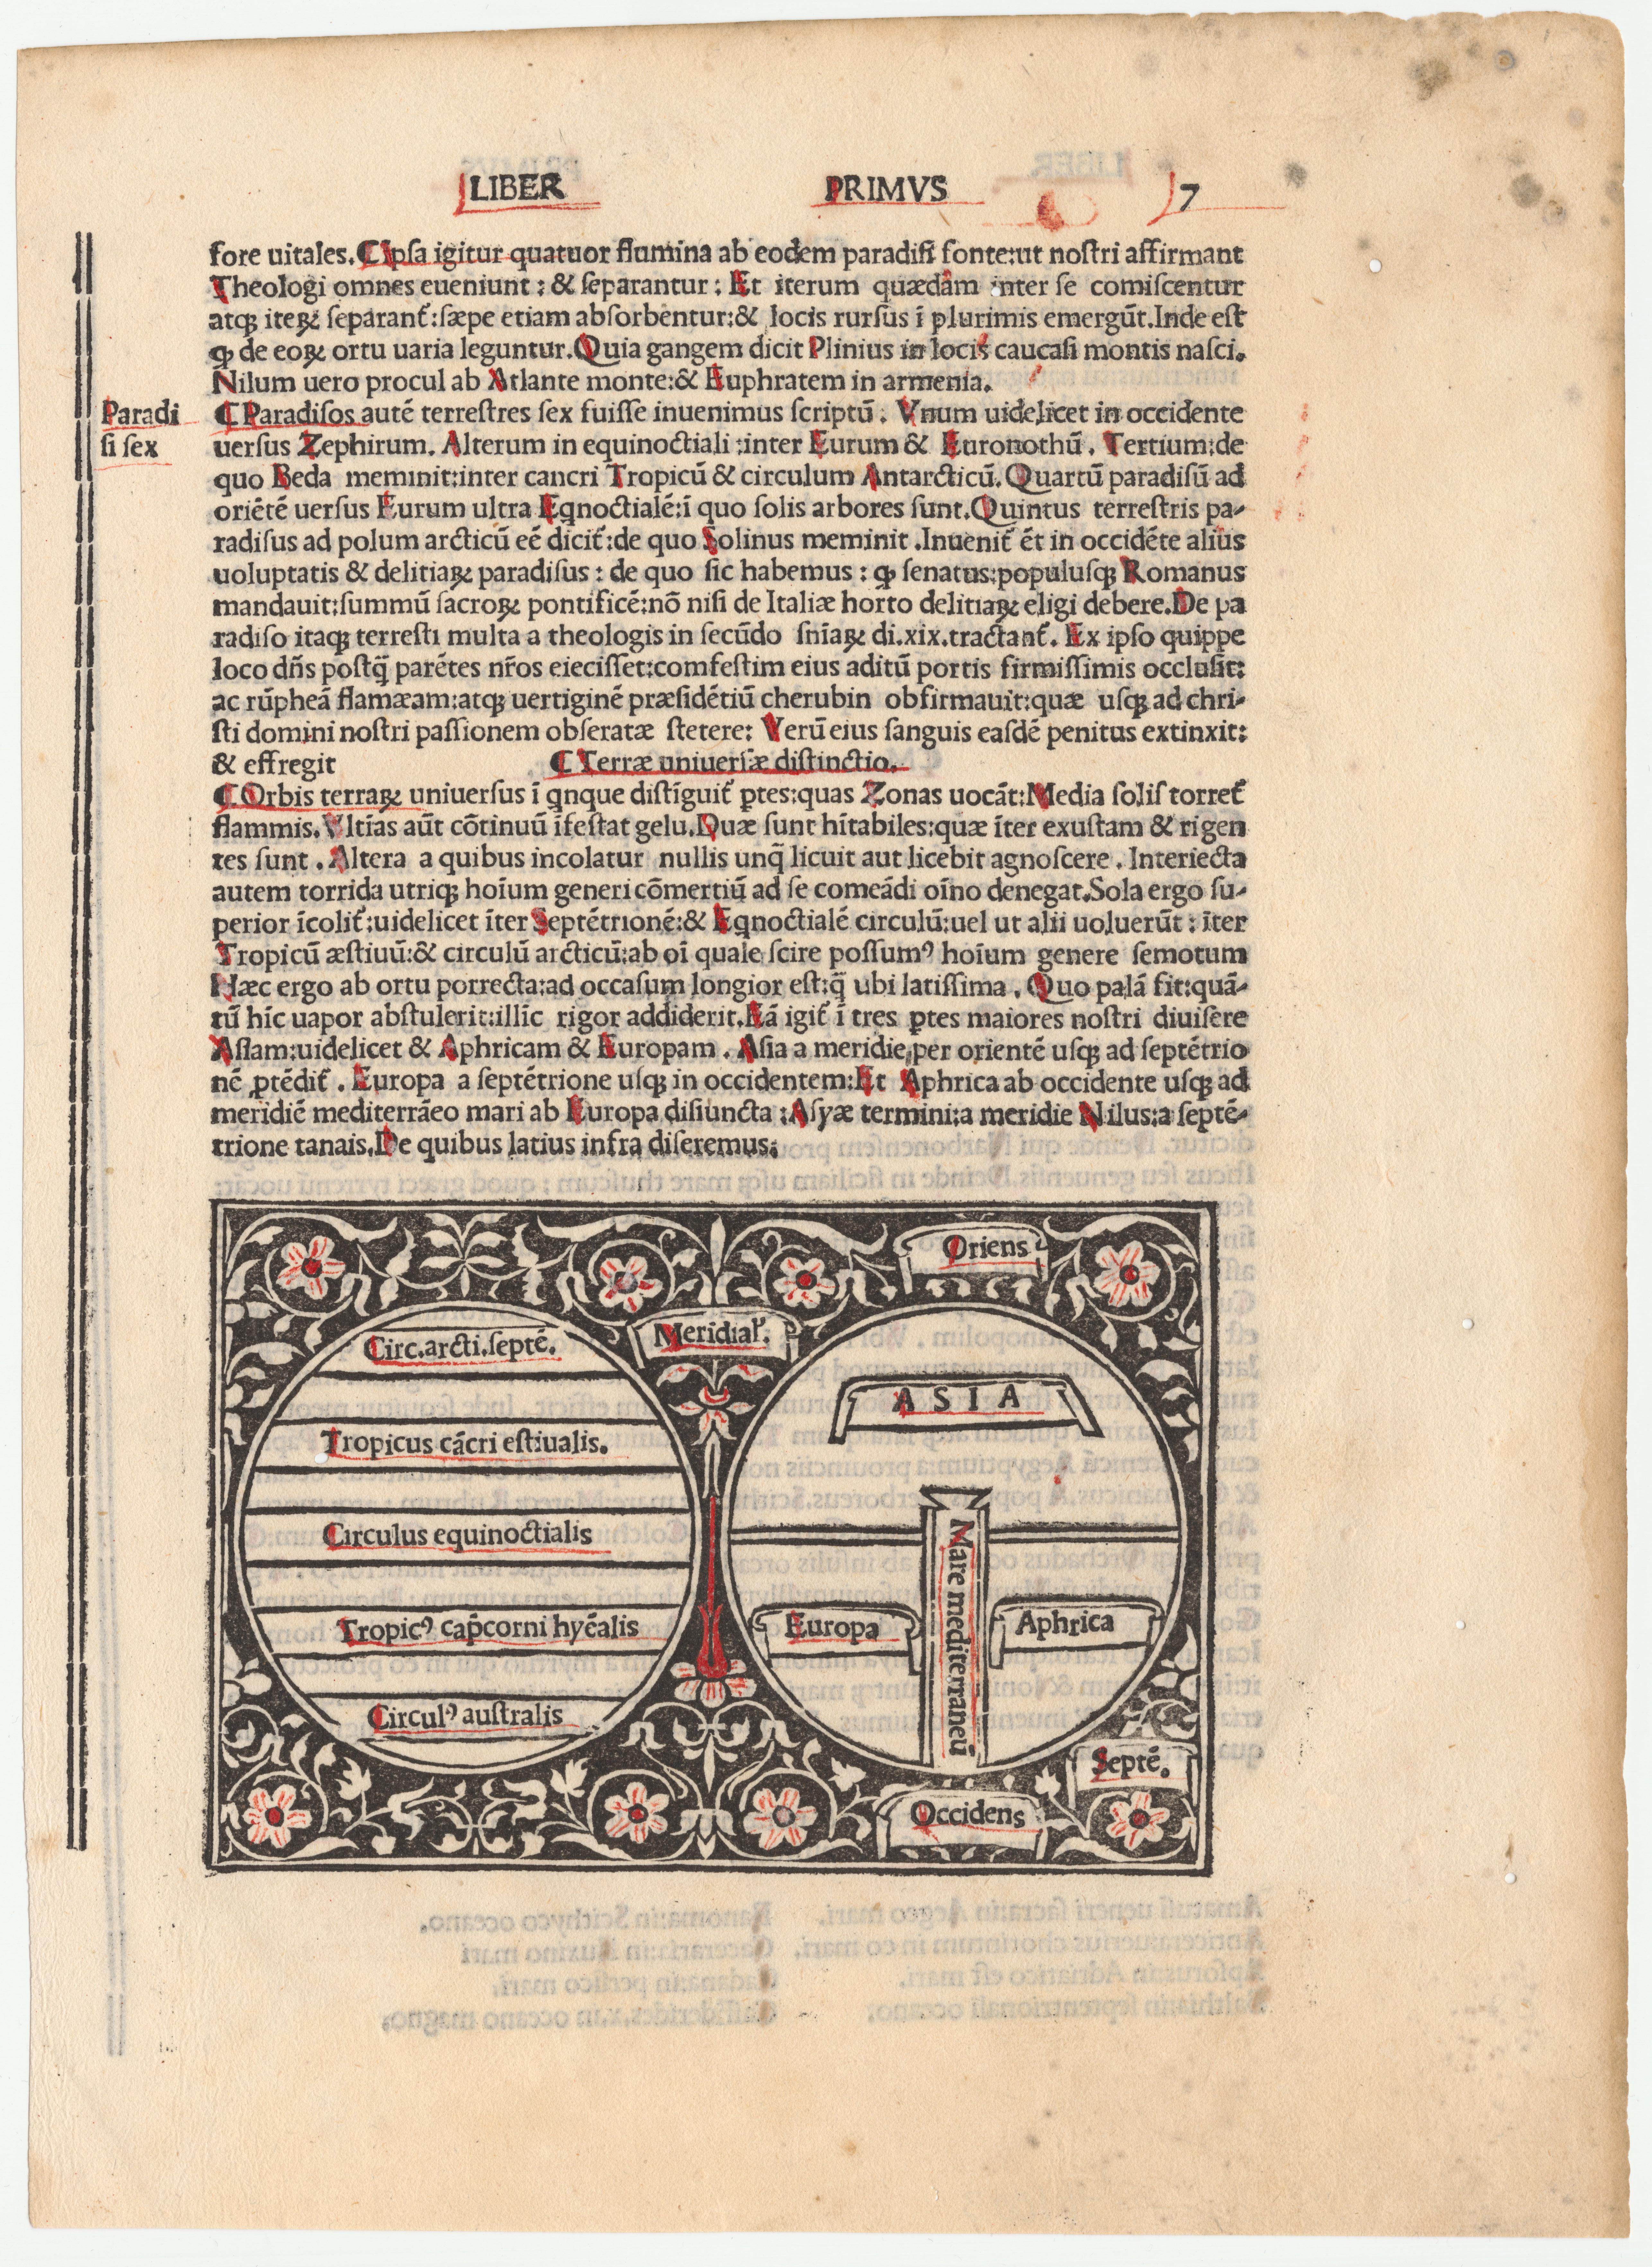 LIBER PRIMVS 7
fore uitales.¶Ipſa igitur quatuor flumina ab eodem paradiſi fonte:ut noſtri affirmant
Theologi omnes eueniunt : & ſeparantur : Et iterum quædam inter ſe comiſcentur
atqꝫ iteꝝ ſeparant᷑:ſæpe etiam abſorbentur:& locis rurſus ī plurimis emergūt.Inde eſt
ꝙ de eoꝝ ortu uaria leguntur.Quia gangem dicit Plinius in locis caucaſi montis naſci.
Nilum uero procul ab Atlante monte:& Euphratem in armenia.
Paradi
ſi ſex
¶ Paradiſos autē terreſtres ſex fuiſſe inuenimus ſcriptū . Vnum uidelicet in occidente
uerſus Zephirum. Alterum in equinoctiali :inter Eurum & Euronothū . Tertium:de
quo Beda meminit:inter cancri Tropicū & circulum Antarcticū.Quartū paradiſū ad
oriētē uerſus Eurum ultra Eqnoctialē:ī quo ſolis arbores ſunt.Quintus terreſtris pa-
radiſus ad polum arcticū eē dicit᷑:de quo Solinus meminit .Inuenit᷑ ēt in occidēte alius
uoluptatis & delitiaꝝ paradiſus : de quo ſic habemus : ꝙ ſenatus:populuſqꝫ Romanus
mandauit:ſummū ſacroꝝ pontificē:nō niſi de Italiæ horto delitiaꝝ eligi debere.De pa
radiſo itaqꝫ terreſti multa a theologis in ſecūdo ſnīaꝝ di.xix.tractant᷑. Ex ipſo quippe
loco dn̄s poſtq̄ parētes nr̄os eieciſſet:comfeſtim eius aditū portis firmiſſimis occluſit:
ac rūpheā flamæam:atqꝫ uertiginē præſidētiū cherubin obfirmauit:quæ uſqꝫ ad chri-
ſti domini noſtri paſſionem obſeratæ ſtetere: Verū eius ſanguis eaſdē penitus extinxit:
& effregit ¶ Terræ uniuerſæ diſtinctio.
¶Orbis terraꝝ uniuerſus ī qnque diſtīguit᷑ ꝑtes:quas Zonas uocāt:Media ſolis torret᷑
flammis.Vltīas aūt cōtinuū īfeſtat gelu.Duæ ſunt hītabiles:quæ īter exuſtam & rigen
tes ſunt . Altera a quibus incolatur nullis unq̄ licuit aut licebit agnoſcere . Interiecta
autem torrida utriqꝫ hoīum generi cōmertiū ad ſe comeādi oīno denegat.Sola ergo ſu-
perior īcolit᷑:uidelicet īter Septētrionē:& Eqnoctialē circulū:uel ut alii uoluerūt : īter
Tropicū æſtiuū:& circulū arcticū:ab oī quale ſcire poſſumꝰ hoīum genere ſemotum
Hæc ergo ab ortu porrecta:ad occaſum longior eſt:q̄ ubi latiſſima . Quo palā fit:quā-
tū hīc uapor abſtulerit:illīc rigor addiderit.Eā igit᷑ ī tres ꝑtes maiores noſtri diuiſere
Aſiam:uidelicet & Aphricam & Europam . Aſia a meridie:per orientē uſqꝫ ad ſeptētrio
nē ꝑtēdit᷑ . Europa a ſeptētrione uſqꝫ in occidentem:Et Aphrica ab occidente uſqꝫ ad
meridiē mediterrāeo mari ab Europa diſiuncta :Aſyæ termini:a meridie Nilus:a ſeptē-
trione tanais.De quibus latius infra diſeremus:
Oriens
Meridial᷑.
Circ.arcti.ſeptē.
Tropicus cācri eſtiualis.
Circulus equinoctialis
Tropicꝰ cap̄corni hyēalis
Circulꝰ auſtralis
ASIA
Mare mediterraneū
Europa
Aphrica
Septē.
Occidens